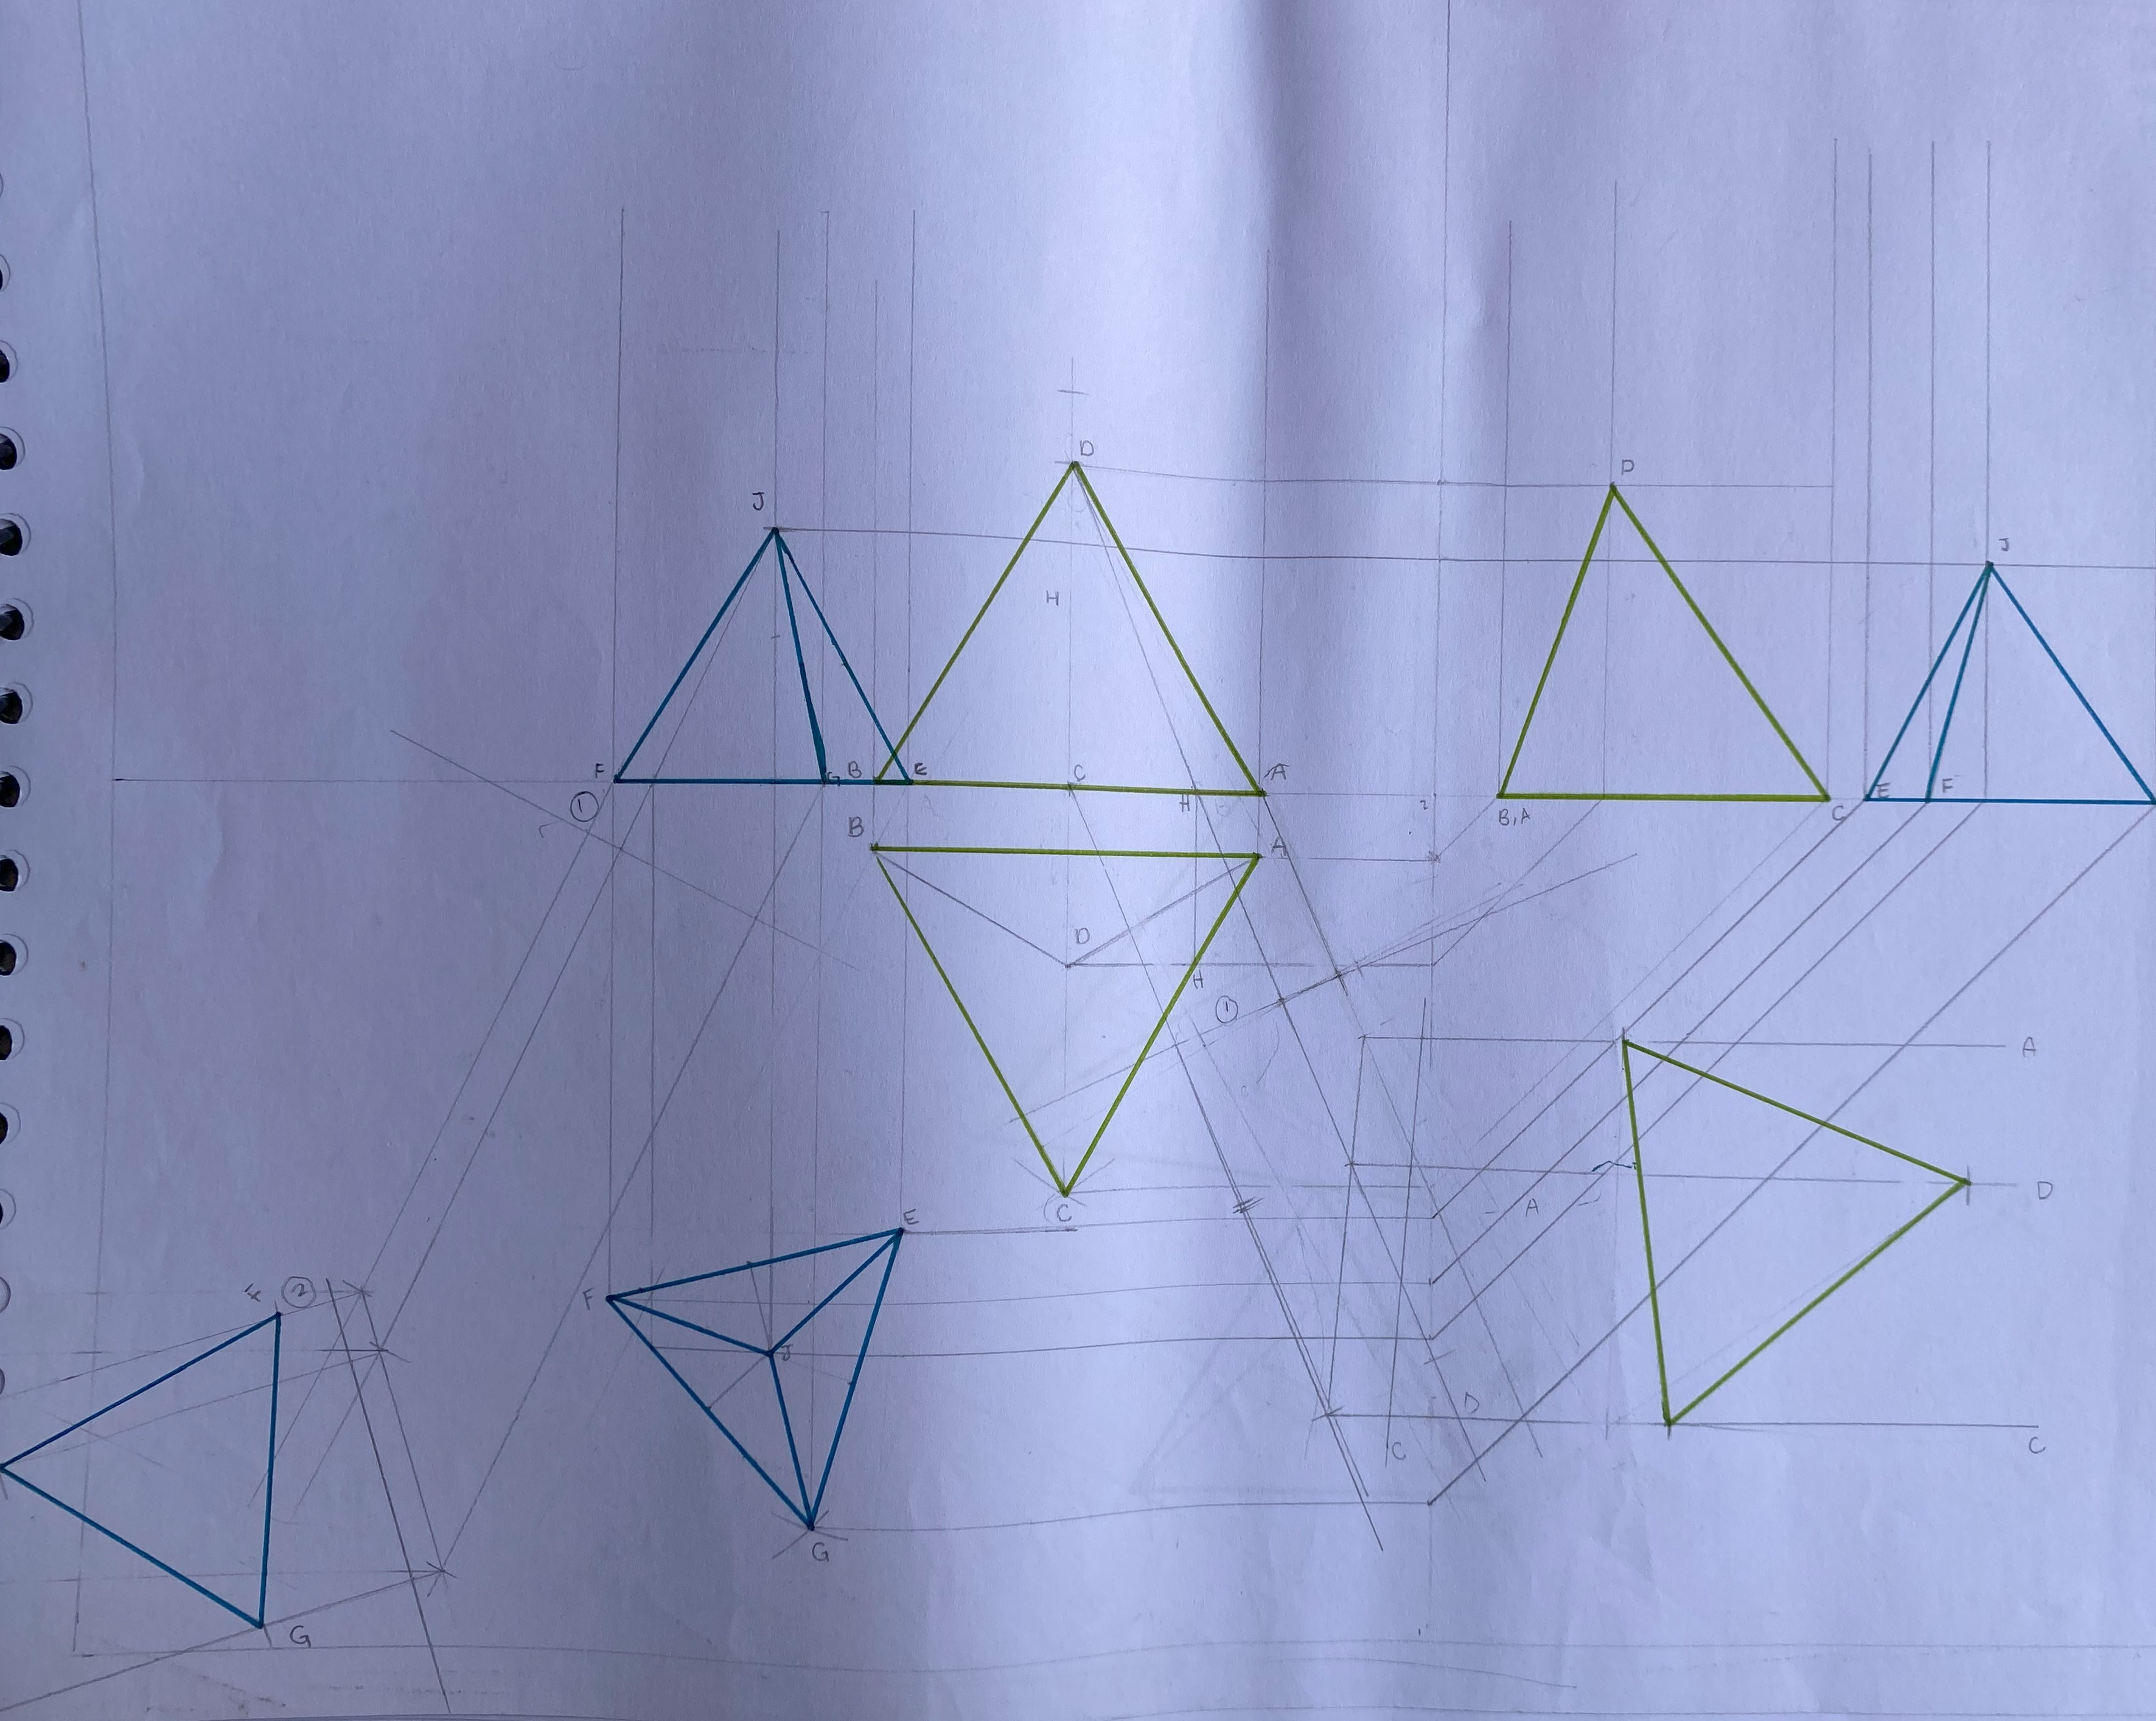 D
P
J
J
H
F
G
B
E
C
A
H
2
①
B,A
C
E
F
B
A
D
H
①
A
D
A
C
E
F
②
F
J
D
C
C
G
G